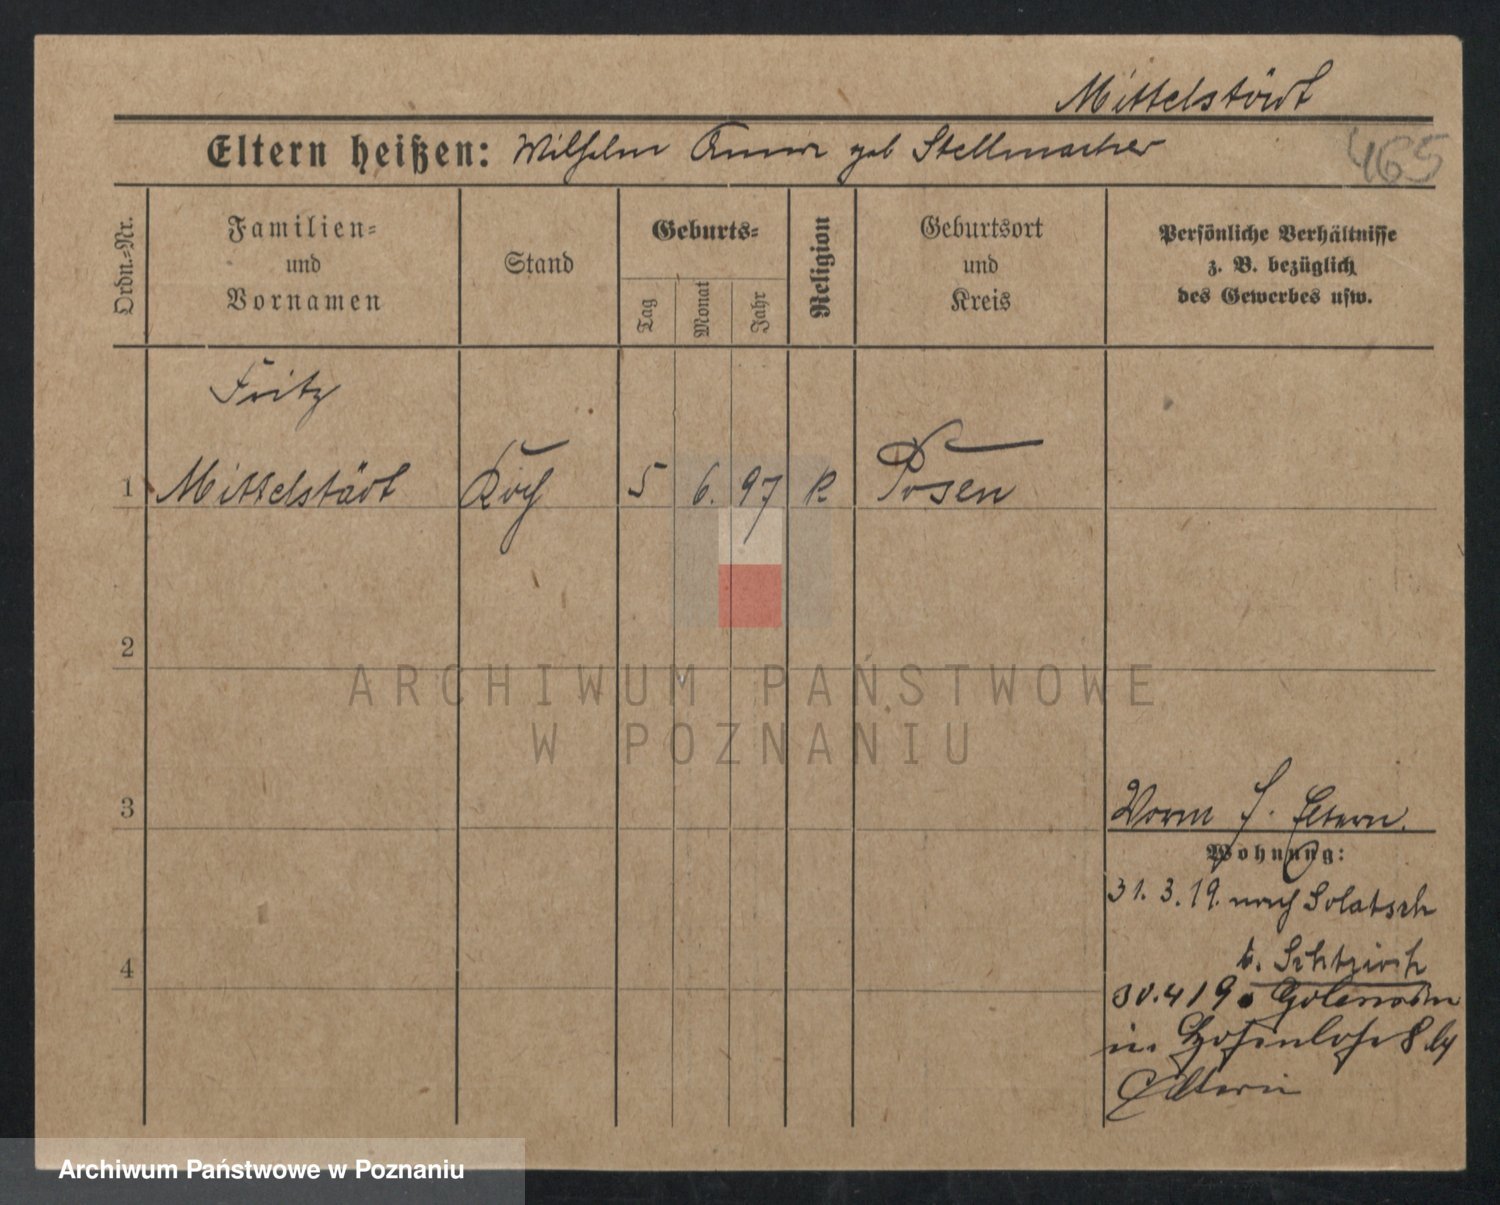 Mittelstädt
Eltern heißen: Wilhelm Anna geb Stellmacher
465
Ordn.-Nr.
Familien-
und
Vornamen
Stand
Geburts-
Tag
Monat
Jahr
Religion
Geburtsort
und
Kreis
Persönliche Verhältnisse
z. B. bezüglich
des Gewerbes usw.
Fritz
1 Mittelstädt Koch 5 6. 97 k. Posen
2
ARCHIWUM PAŃSTWOWE
W POZNANIU
3
Eltern.
Wohnung:
31. 3. 19. nach Solatsch
4
30.4 19
in Hohenlohe 8 by
Eltern
Archiwum Państwowe w Poznaniu